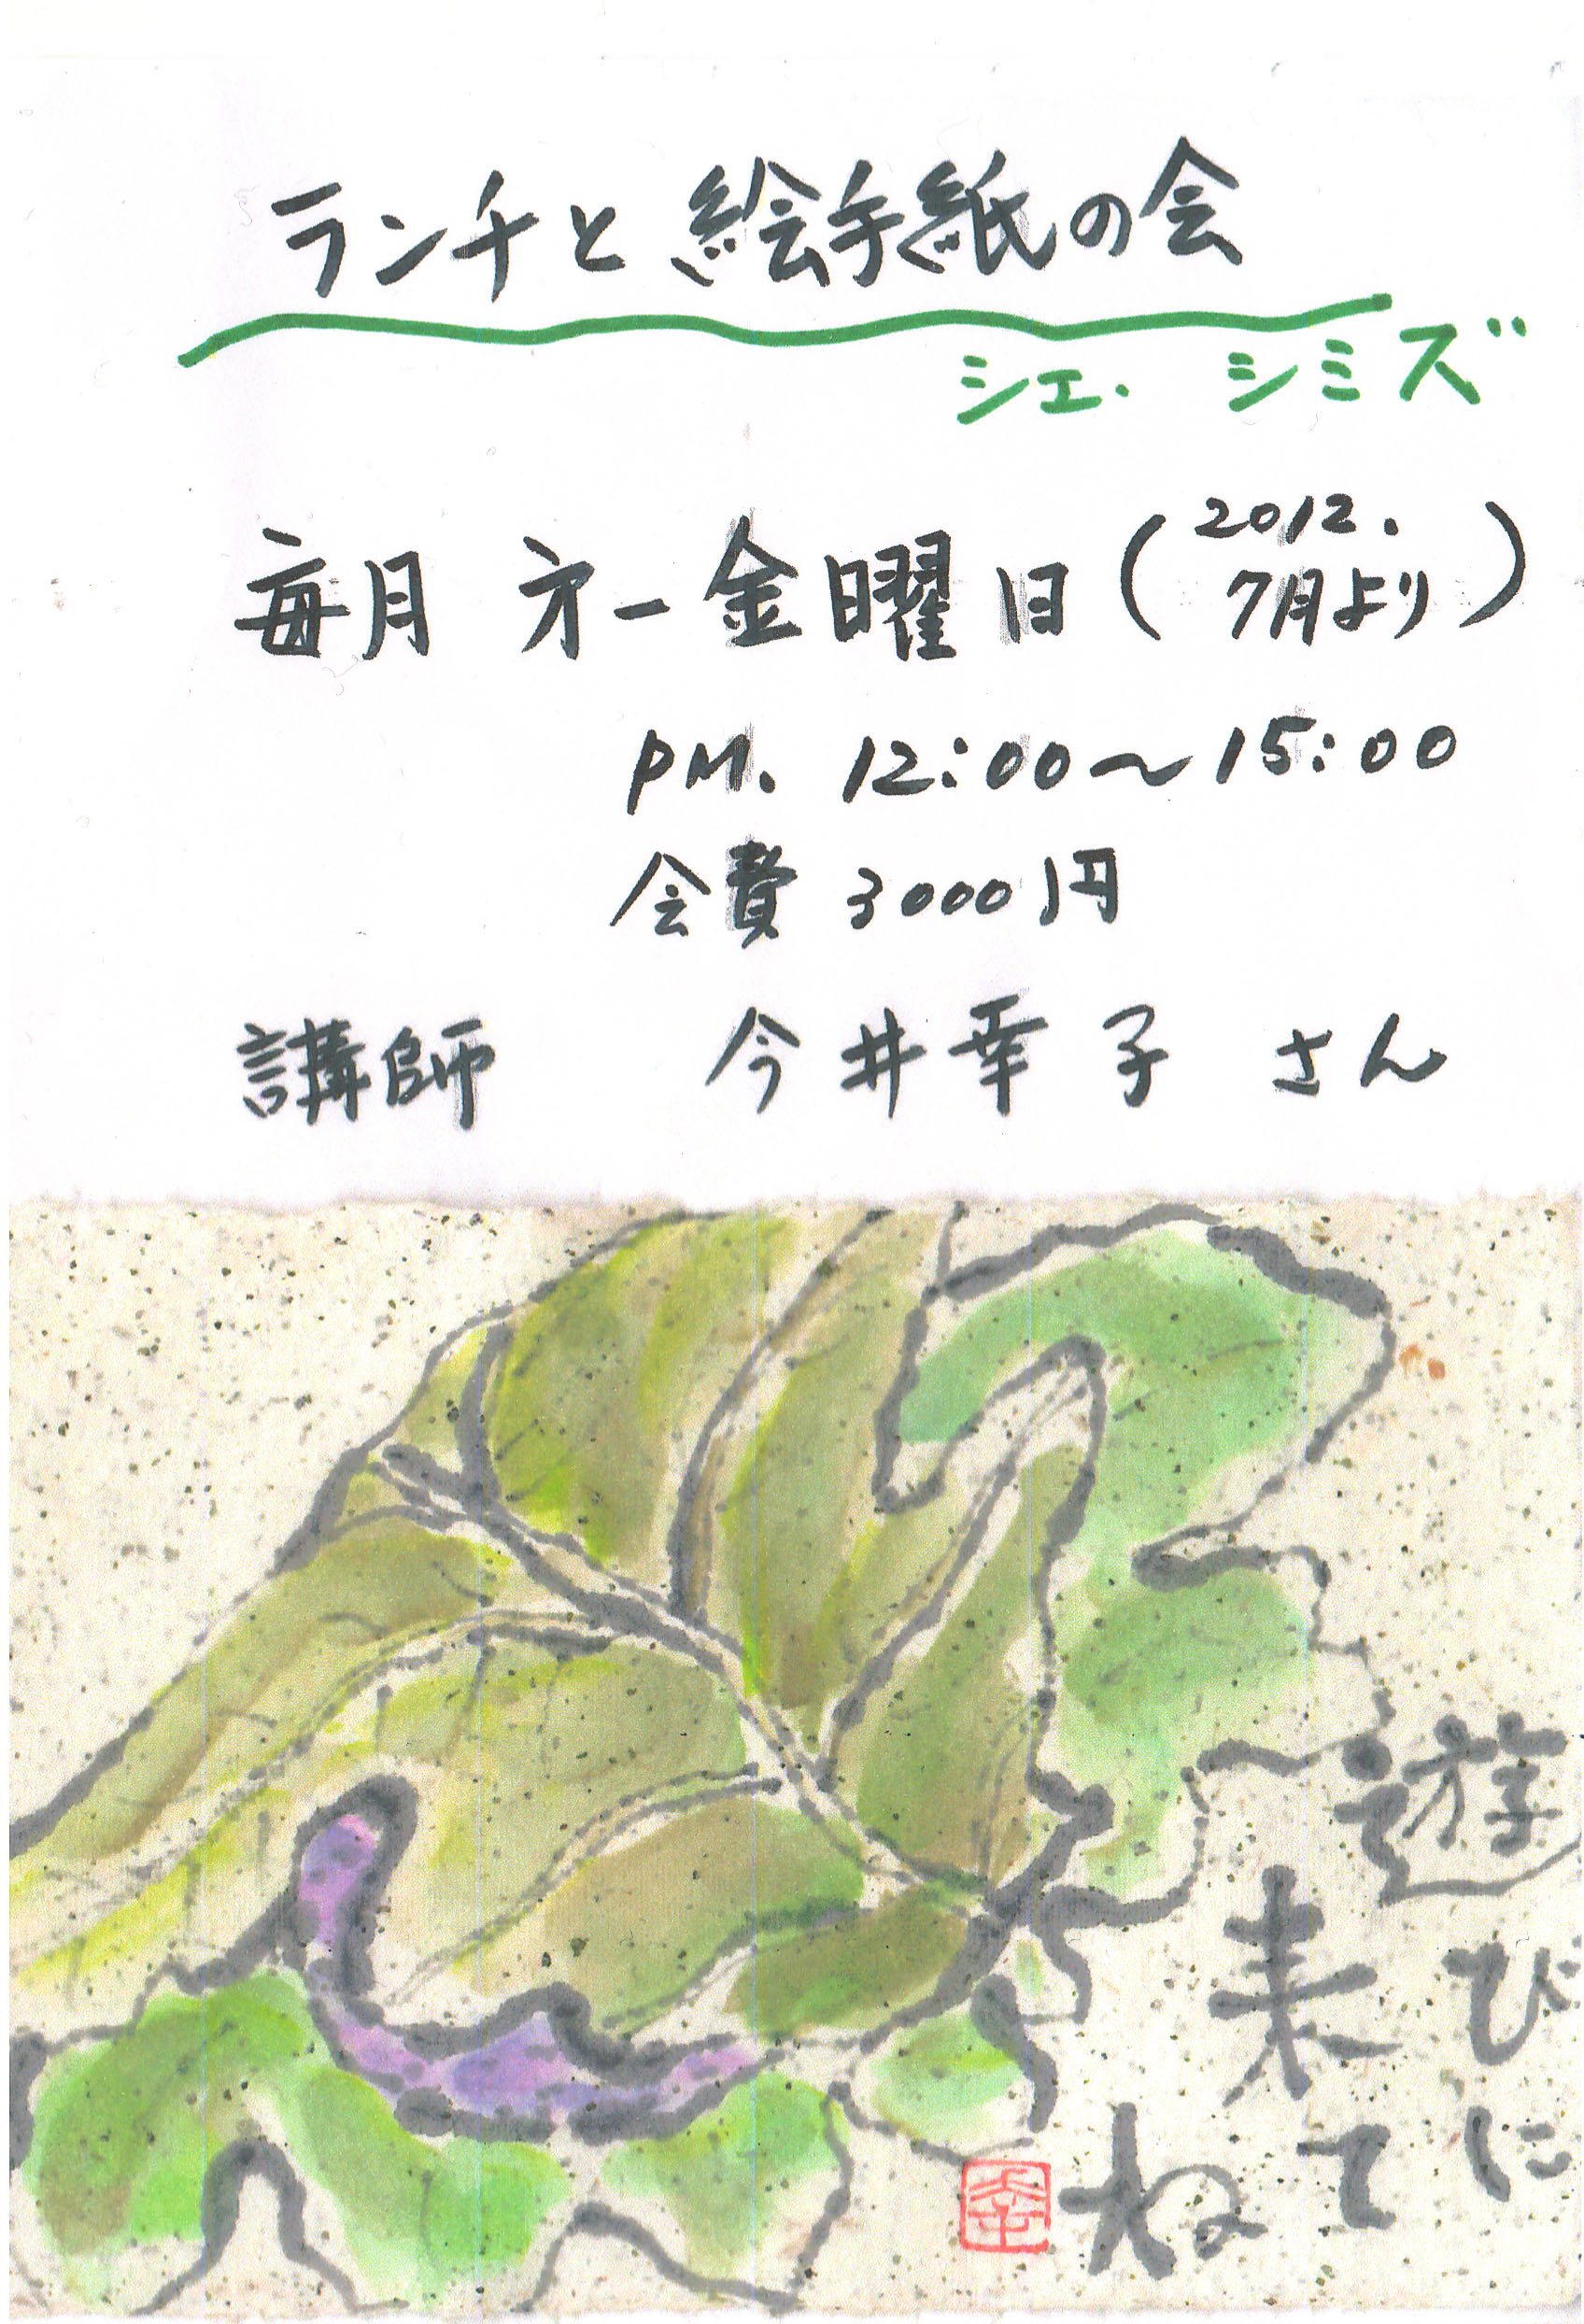 ランチと絵手紙の会
シェ. シミズ
毎月 才一金曜日(2012.7月より)
PM. 12:00〜15:00
会費 3000円
講師 今井幸子 さん
遊びに
来て
ね
幸